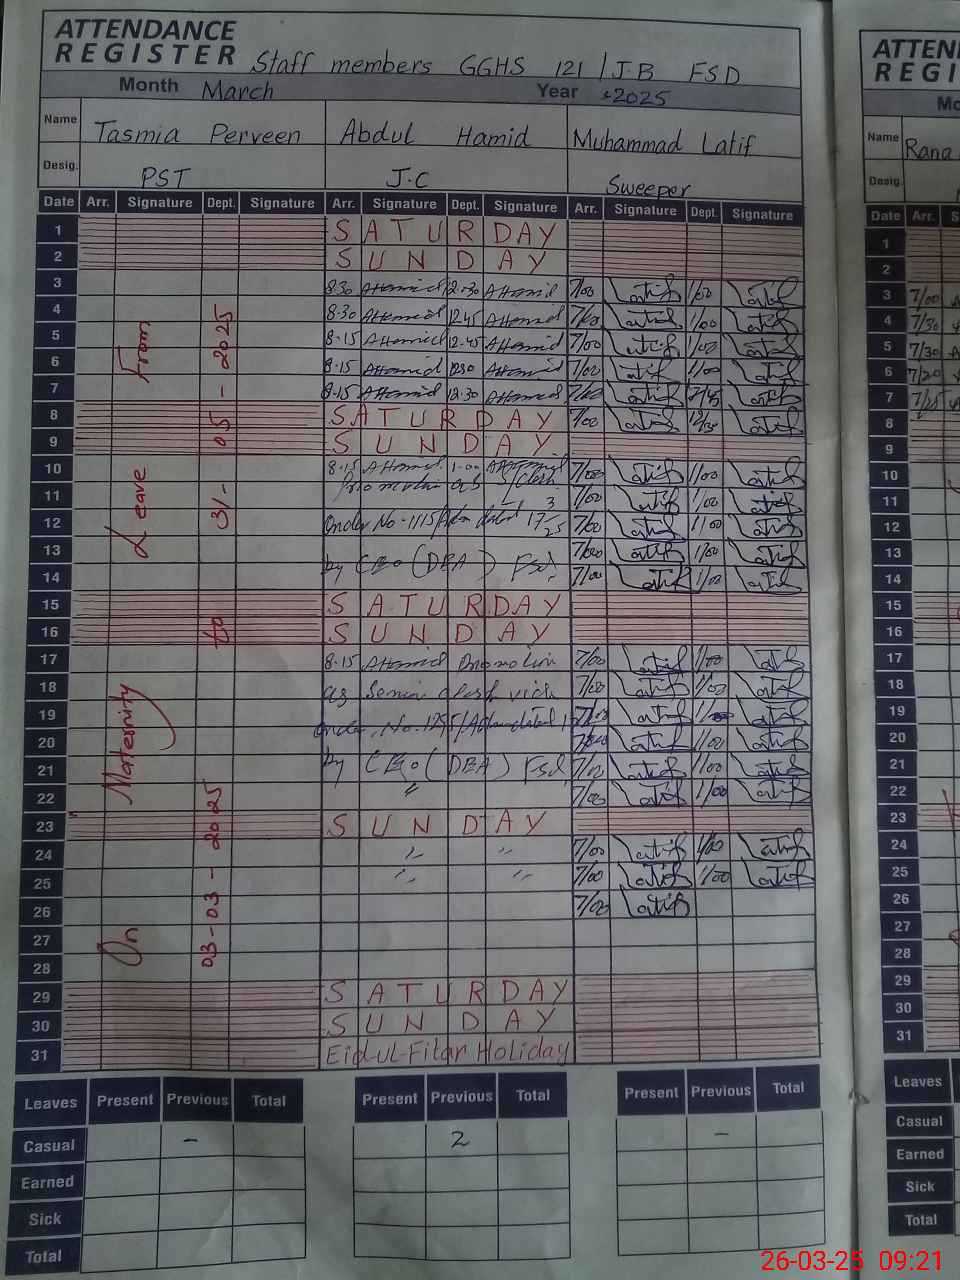 ATTENDANCE
REGISTER Staff members GGHS 121/J.B FSD
Month March Year 2025
Name Tasmia Perveen Abdul Hamid Muhammad Latif
Desig. PST J.C Sweeper
Date Arr. Signature Dept. Signature Arr. Signature Dept. Signature Arr. Signature Dept. Signature
1 SATURDAY
2 SUNDAY
3 8.30 AHamid 12.30 AHamid 7/00 Latif 1/00 Latif
4 8.30 AHamid 12.45 AHamid 7/00 Latif 1/00 Latif
5 8.15 AHamid 12.45 AHamid 7/00 Latif 1/00 Latif
6 8.15 AHamid 1230 AHamid 7/00 Latif 1/00 Latif
7 8.15 AHamid 12.30 AHamid 7/00 Latif Latif
8 SATURDAY 7/00 Latif 12/30 Latif
9 SUNDAY
10 8.15 AHamid 1.00 7/00 Latif 1/00 Latif
11 Promotion as S/Clerk 7/00 Latif 1/00 Latif
12 Order No-1115/Adm dated 17 3 25 7/00 Latif 1/00 Latif
13 7/00 Latif 1/00 Latif
by CEO (DEA) Fsd.
14 7/00 Latif 1/00 Latif
15 SATURDAY
16 SUNDAY
17 8.15 AHamid Promotion 7/00 Latif 1/00 Latif
18 as Senior clerk vide 7/00 Latif 1/00 Latif
19 order, No. dated 7/00 Latif 1/00 Latif
20 7/00 Latif 1/00 Latif
21 by CEO (DEA) Fsd 7/00 Latif 1/00 Latif
22 " 7/00 Latif 1/00 Latif
23 SUNDAY
24 " " 7/00 Latif 1/00 Latif
25 " " 7/00 Latif 1/00 Latif
26 7/00 Latif
27
28
29 SATURDAY
30 SUNDAY
31 Eid-ul-Fitar Holiday
On Maternity Leave From
03-03-2025 to 31-05-2025
Leaves Present Previous Total Present Previous Total Present Previous Total
Casual - 2 -
Earned
Sick
Total
REGI
Name Rana
Desig.
Date Arr.
1
2
3 7/00
4 7/30
5 7/30
6 7/20
7 7/25
8
9
10
11
12
13
14
15
16
17
18
19
20
21
22
23
24
25
26
27
28
29
30
31
Leaves
Casual
Earned
Sick
Total
26-03-25 09:21